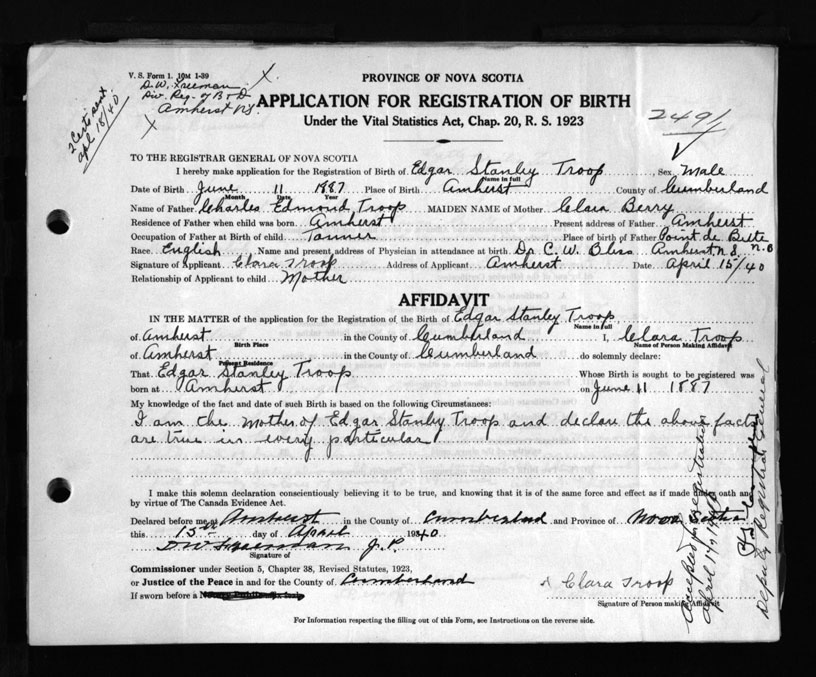 V. S. Form 1. 10M 1-39
D. W. Freeman
Div. Reg. of B & D
Amherst N.S.
2 Certs sent
apl 18/40
PROVINCE OF NOVA SCOTIA
APPLICATION FOR REGISTRATION OF BIRTH
Under the Vital Statistics Act, Chap. 20, R. S. 1923
2491
TO THE REGISTRAR GENERAL OF NOVA SCOTIA
I hereby make application for the Registration of Birth of Edgar Stanley Troop, Sex Male
Name in full
Date of Birth June 11 1887 Place of Birth Amherst County of Cumberland
Month Date Year
Name of Father Charles Edmond Troop MAIDEN NAME of Mother Clara Berry
Residence of Father when child was born Amherst Present address of Father Amherst
Occupation of Father at Birth of child Tanner Place of birth of Father Point de Bute N.B
Race English Name and present address of Physician in attendance at birth Dr C. W. Bliss Amherst N.S.
Signature of Applicant Clara Troop Address of Applicant Amherst Date April 15/40
Relationship of Applicant to child Mother
AFFIDAVIT
IN THE MATTER of the application for the Registration of the Birth of Edgar Stanley Troop
Name in full
of Amherst in the County of Cumberland I, Clara Troop
Birth Place Name of Person Making Affidavit
of Amherst in the County of Cumberland do solemnly declare:
Present Residence
That Edgar Stanley Troop Whose Birth is sought to be registered was
born at Amherst on June 11 1887
My knowledge of the fact and date of such Birth is based on the following Circumstances:
I am the Mother of Edgar Stanley Troop and declare the above facts
are true in every particular
I make this solemn declaration conscientiously believing it to be true, and knowing that it is of the same force and effect as if made under oath and
by virtue of The Canada Evidence Act.
Declared before me at Amherst in the County of Cumberland and Province of Nova Scotia
this 15th day of April 1940
D W Freeman J. P.
Signature of
Commissioner under Section 5, Chapter 38, Revised Statutes, 1923,
or Justice of the Peace in and for the County of Cumberland
If sworn before a
Clara Troop
Signature of Person making Affidavit
For Information respecting the filling out of this Form, see Instructions on the reverse side.
Accepted for registration
April 17, 1940
Deputy Registrar General